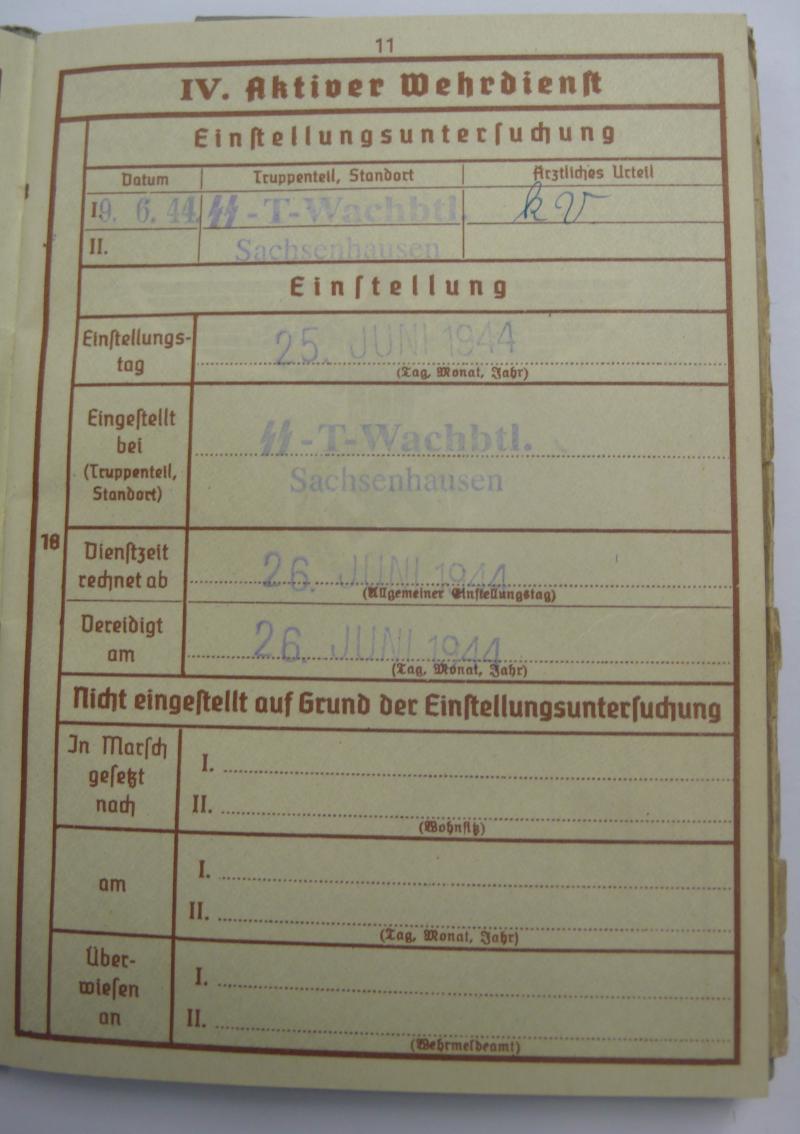 11
IV. Aktiver Wehrdienst
Einstellungsuntersuchung
Datum Truppenteil, Standort Ärztliches Urteil
I. 9. 6. 44. ᛋᛋ-T-Wachbtl. kv
II. Sachsenhausen
Einstellung
Einstellungs-
tag
25. JUNI 1944
(Tag, Monat, Jahr)
Eingestellt
bei
(Truppenteil,
Standort)
ᛋᛋ-T-Wachbtl.
Sachsenhausen
18
Dienstzeit
rechnet ab
26. JUNI 1944
(Allgemeiner Einstellungstag)
Vereidigt
am
26. JUNI 1944
(Tag, Monat, Jahr)
Nicht eingestellt auf Grund der Einstellungsuntersuchung
In Marsch
gesetzt
nach
I.
II.
(Wohnsitz)
am
I.
II.
(Tag, Monat, Jahr)
Über-
wiesen
an
I.
II.
(Wehrmeldeamt)